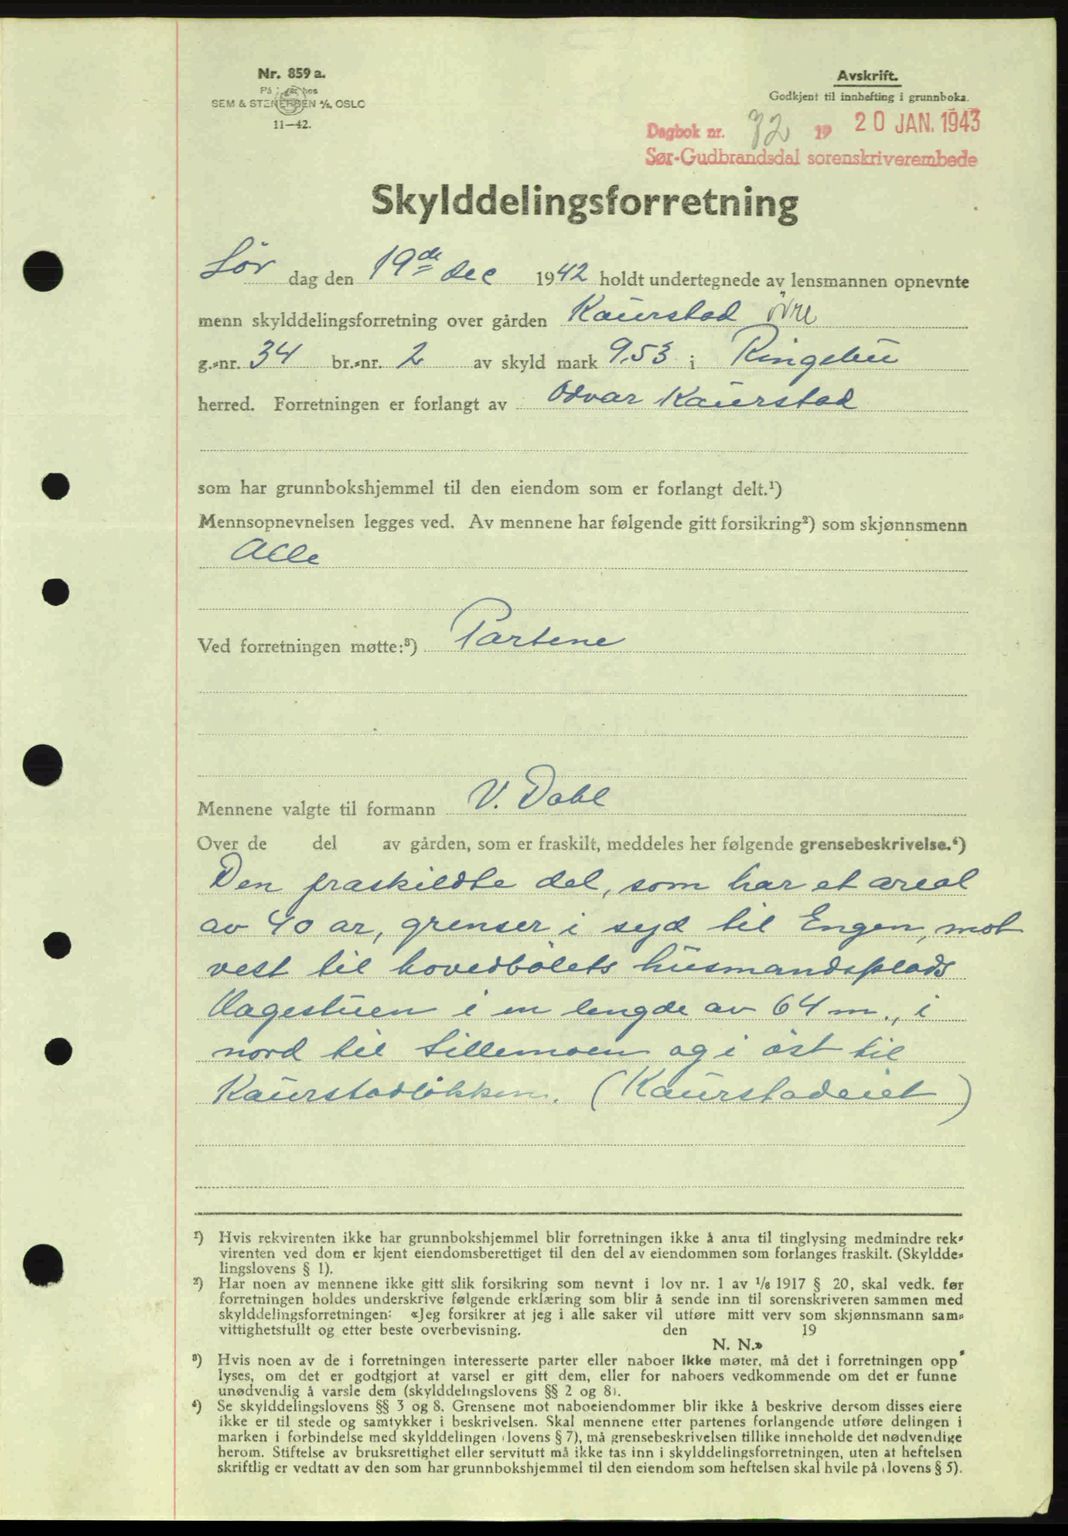 Nr. 859 a.
På lager hos
SEM & STENERSEN A/S, OSLO
11—42.
Avskrift.
Godkjent til innhefting i grunnboka.
Dagbok nr. 92 19 20 JAN. 1943
Sør-Gudbrandsdal sorenskriverembede
Skylddelingsforretning
Lør dag den 19de dec 1942 holdt undertegnede av lensmannen opnevnte
menn skylddelingsforretning over gården Kaurstad øvre
g.-nr. 34 br.-nr. 2 av skyld mark 9,53 i Ringebu
herred. Forretningen er forlangt av Odvar Kaurstad
som har grunnbokshjemmel til den eiendom som er forlangt delt.¹)
Mennsopnevnelsen legges ved. Av mennene har følgende gitt forsikring²) som skjønnsmenn
Alle
Ved forretningen møtte:³) Partene
Mennene valgte til formann V. Dahl
Over de del av gården, som er fraskilt, meddeles her følgende grensebeskrivelse.⁴)
Den fraskildte del, som har et areal
av 40 ar, grenser i syd til Engen, mot
vest til hovedbølets husmandsplads
Hagestuen i en lengde av 64 m., i
nord til Lillemoen og i øst til
Kaurstadløkken. (Kaurstadeiet)
¹) Hvis rekvirenten ikke har grunnbokshjemmel blir forretningen ikke å anta til tinglysing medmindre rek-
virenten ved dom er kjent eiendomsberettiget til den del av eiendommen som forlanges fraskilt. (Skyldde-
lingslovens § 1).
²) Har noen av mennene ikke gitt slik forsikring som nevnt i lov nr. 1 av ¹/₆ 1917 § 20, skal vedk. før
forretningen holdes underskrive følgende erklæring som blir å sende inn til sorenskriveren sammen med
skylddelingsforretningen: «Jeg forsikrer at jeg i alle saker vil utføre mitt verv som skjønnsmann sam-
vittighetsfullt og etter beste overbevisning. den 19
N. N.»
³) Hvis noen av de i forretningen interesserte parter eller naboer ikke møter, må det i forretningen opp
lyses, om det er godtgjort at varsel er gitt dem, eller for naboers vedkommende om det er funne
unødvendig å varsle dem (skylddelingslovens §§ 2 og 8).
⁴) Se skylddelingslovens §§ 3 og 8. Grensene mot naboeiendommer blir ikke å beskrive dersom disses eiere
ikke er til stede og samtykker i beskrivelsen. Skal mennene etter partenes forlangende utføre delingen i
marken i forbindelse med skylddelingen (lovens § 7), må grensebeskrivelsen tillike inneholde det nødvendige
herom. Stiftelse av bruksrettighet eller servitutt må ikke tas inn i skylddelingsforretningen, uten at heftelsen
skriftlig er vedtatt av den som har grunnbokshjemmel til den eiendom som heftelsen skal hvile på (lovens § 5).